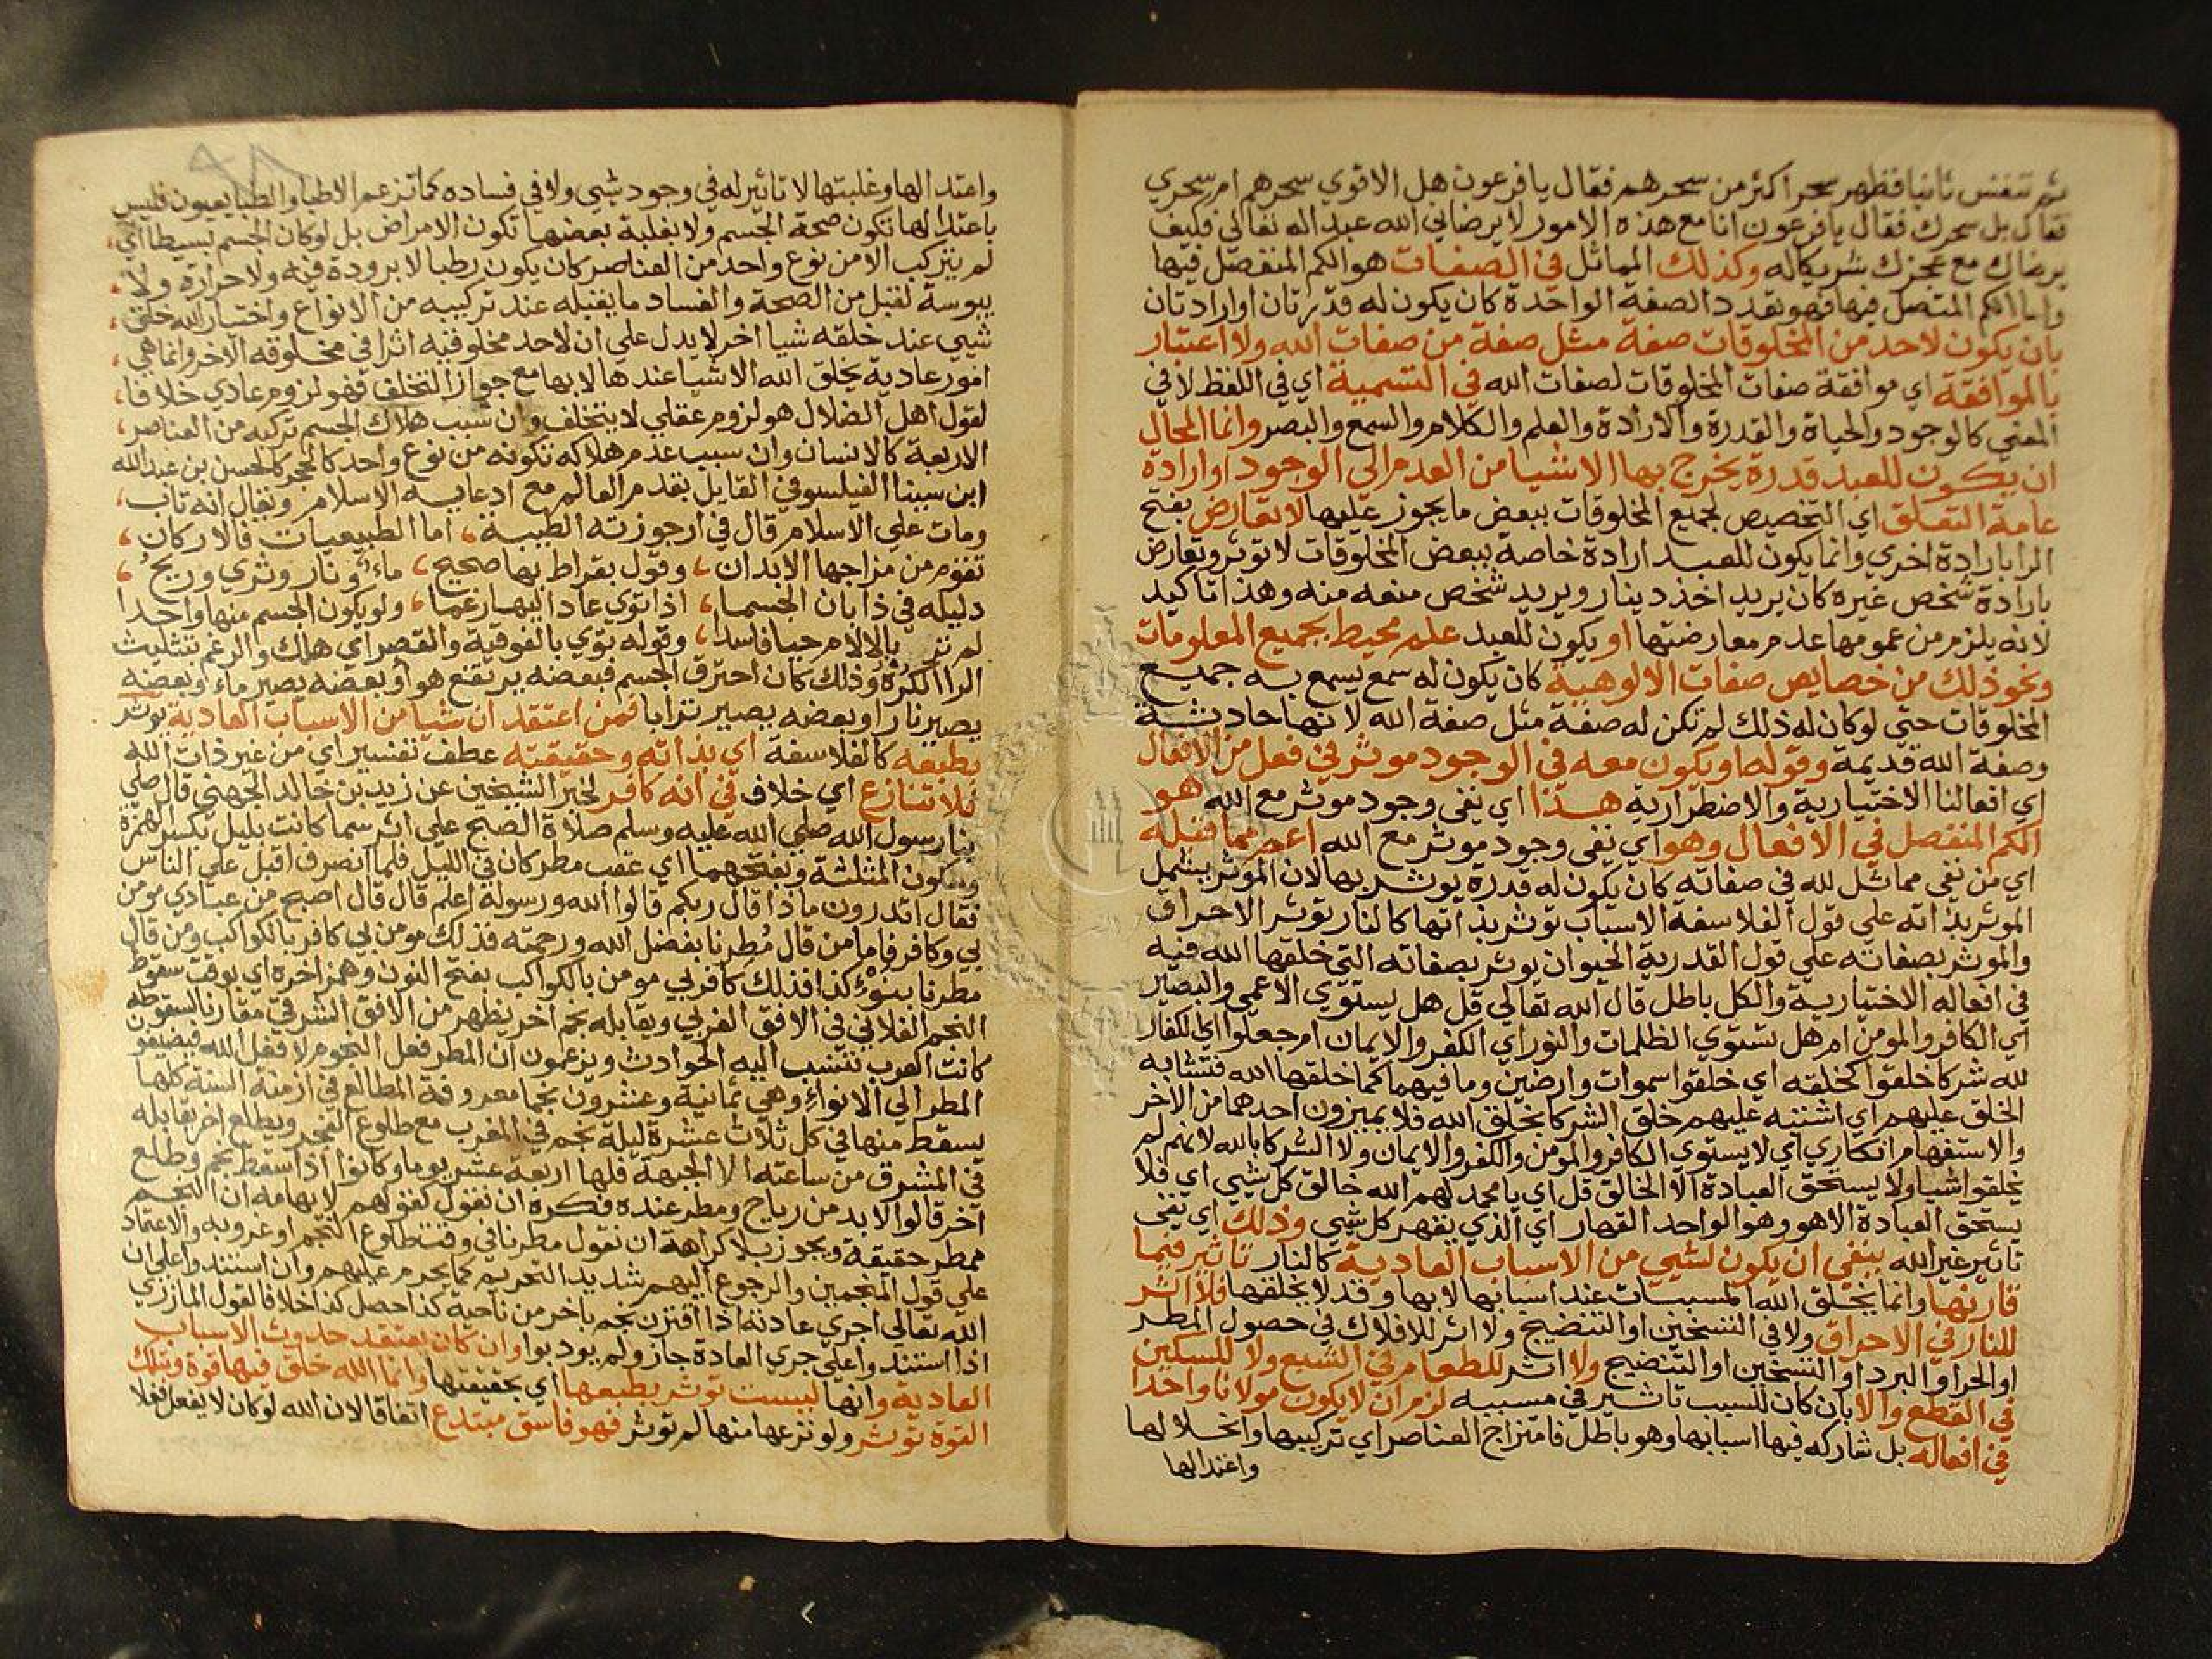 ثم تنفس ثانيا فظهر سحرا كثر من سحرهم فقال يا فرعون هل الاقوي سحرهم ام سحري
فقال بل سحرك فقال يا فرعون انا مع هذه الامور لا يرضاني الله عبدا له تعالي فكيف
يرضاك مع عجزك شريكا له وكذلك المماثل في الصفات هو الكم المنفصل فيها
واما الكم المتصل فيها فهو تعدد الصفة الواحدة كان يكون له قدرتان او ارادتان
بان يكون لاحد من المخلوقات صفة مثل صفة من صفات الله ولا اعتبار
بالموافقة اي موافقة صفات المخلوقات لصفات الله في التسمية اي في اللفظ لا في
المعني كالوجود والحياة والقدرة والارادة والعلم والكلام والسمع والبصر وانما المحال
ان يكون للعبد قدرة يخرج بها الاشيا من العدم الي الوجود او ارادة
عامة التعلق اي التخصيص لجميع المخلوقات ببعض ما يجوز عليها لا تعارض بفتح
الرا بارادة اخري وانما يكون للعبد ارادة خاصة ببعض المخلوقات لا توثر وتعارض
بارادة شخص غيره كان يريد اخذ دينار ويريد شخص منعه منه وهذا تاكيد
لانه يلزم من عمومها عدم معارضتها او يكون للعبد علم محيط بجميع المعلومات
ونحو ذلك من خصايص صفات الالوهية كان يكون له سمع يسمع به جميع
المخلوقات حتي لو كان له ذلك لم تكن له صفة مثل صفة الله لانها حادثة
وصفة الله قديمة وقوله او يكون معه في الوجود موثر في فعل من الافعال
اي افعالنا الاختيارية والاضطرارية هذا اي نفي وجود موثر مع الله هو
الكم المنفصل في الافعال وهو اي نفي وجود موثر مع الله اعم مما قبله
اي من نفي مماثل لله في صفاته كان يكون له قدرة يوثر بها لان الموثر يشمل
الموثر بذاته علي قول الفلاسفة الاسباب توثر بذاتها كالنار توثر الاحراق
والموثر بصفاته علي قول القدرية الحيوان يوثر بصفاته التي خلقها الله فيه
في افعاله الاختيارية والكل باطل قال الله تعالي قل هل يستوي الاعمي والبصير
اي الكافر والمومن ام هل تستوي الظلمات والنور اي الكفر والايمان ام جعلوا اي الكفار
لله شركا خلقوا كخلقه اي خلقوا سموات وارضين وما فيهما كما خلقها الله فتشابه
الخلق عليهم اي اشتبه عليهم خلق الشركا بخلق الله فلا يميزون احدهما من الاخر
والاستفهام انكاري اي لا يستوي الكافر والمومن والكفر والايمان ولا الشركا بالله لانهم لم
يخلقوا شيا ولا يستحق العبادة الا الخالق قل اي يا محمد لهم الله خالق كل شيي اي فلا
يستحق العبادة الا هو وهو الواحد القهار اي الذي يقهر كل شيي وذلك اي نفي
تاثير غير الله ينفي ان يكون لشيي من الاسباب العادية كالنار تاثير فيما
قارنها وانما يخلق الله المسببات عند اسبابها لا بها وقد لا يخلقها فلا اثر
للنار في الاحراق ولا في التسخين او التنضيج ولا اثر للافلاك في حصول المطر
او الحر او البرد او التسخين او التنضيج ولا اثر للطعام في الشبع ولا للسكين
في القطع والا بان كان للسبب تاثير في مسببه لزم ان لا يكون مولانا واحدا
في افعاله بل شاركه فيها اسبابها وهو باطل فامتزاج العناصر اي تركيبها وانحلالها
واعتدالها
واعتدالها وغلبتها لا تاثير له في وجود شيي ولا في فساده كما تزعم الاطبا والطبايعيون فليس
باعتدالها تكون صحة الجسم ولا بغلبة بعضها تكون الامراض بل لو كان الجسم بسيطا اي
لم يتركب الا من نوع واحد من العناصر كان يكون رطبا لا برودة فيه ولا حرارة ولا
يبوسة لقبل من الصحة والفساد ما يقبله عند تركيبه من الانواع واختيار الله خلق
شيي عند خلقه شيا اخر لا يدل علي ان لاحد مخلوقيه اثرا في مخلوقه الاخر وانما هي
امور عادية يخلق الله الاشيا عندها لا بها مع جواز التخلف فهو لزوم عادي خلافا
لقول اهل الضلال هو لزوم عقلي لا يتخلف وان سبب هلاك الجسم تركبه من العناصر
الاربعة كالانسان وان سبب عدم هلاكه تكونه من نوع واحد كالحجر كالحسن بن عبد الله
ابن سينا الفيلسوفي القايل بقدم العالم مع ادعايه الاسلام ويقال انه تاب
ومات علي الاسلام قال في ارجوزته الطبية اما الطبيعيات فالاركان
تقوم من مزاجها الابدان وقول بقراط بها صحيح ماء ونار وثري وريح
دليله في ذا بان الجسما اذا توي عاد اليها رغما ولو يكون الجسم منها واحدا
لم تر بالالام حيا فاسدا وقوله توي بالفوقية والقصر اي هلك والرغم بتثليث
الرا الكره وذلك كان احترق الجسم فبعضه يرتفع هو او بعضه يصير ماء وبعضه
يصير نارا وبعضه يصير ترابا فمن اعتقد ان شيا من الاسباب العادية يوثر
بطبعه كالفلاسفة اي بذاته وحقيقته عطف تفسير اي من غير ذات الله
فلا تنازع اي خلاف في انه كافر لخبر الشيخين عن زيد بن خالد الجهني قال صلي
بنا رسول الله صلي الله عليه وسلم صلاة الصبح علي اثر سما كانت بليل بكسر الهمزة
وسكون المثلثة وبفتحهما اي عقب مطر كان في الليل فلما انصرف اقبل علي الناس
فقال اتدرون ماذا قال ربكم قالوا الله ورسوله اعلم قال قال اصبح من عبادي مومن
بي وكافر فاما من قال مطرنا بفضل الله ورحمته فذلك مومن بي كافر بالكواكب ومن قال
مطرنا بنوء كذا فذلك كافر بي مومن بالكواكب بفتح النون وهمز اخره اي بوقت سقوط
النجم الفلاني في الافق الغربي ويقابله نجم اخر يظهر من الافق الشرقي مقارنا لسقوطه
كانت العرب تنسب اليه الحوادث ويزعمون ان المطر فعل النجوم لا فعل الله فيضيفون
المطر الي الانواء وهي ثمانية وعشرون نجما معروفة المطالع في ازمنة السنة كلها
يسقط منها في كل ثلاث عشرة ليلة نجم في المغرب مع طلوع الفجر ويطلع اخر يقابله
في المشرق من ساعته الا الجبهة فلها اربعة عشر يوما وكانوا اذا سقط نجم وطلع
اخر قالوا لا بد من رياح ومطر عنده فكره ان نقول كقولهم لايهامه ان النجم
ممطر حقيقة ويجوز بلا كراهة ان نقول مطرنا في وقت طلوع النجم او غروبه والاعتماد
علي قول المنجمين والرجوع اليهم شديد التحريم كما يحرم عليهم وان استندوا علي ان
الله تعالي اجري عادته اذا اقترن نجم باخر من ناحية كذا حصل كذا خلافا لقول المازري
اذا استندوا علي جري العادة جاز ولم يودبوا وان كان يعتقد حدوث الاسباب
العادية وانها ليست توثر بطبعها اي بحقيقتها وانما الله خلق فيها قوة وبتلك
القوة توثر ولو نزعها منها لم توثر فهو فاسق مبتدع اتفاقا لان الله لو كان لا يفعل فعلا